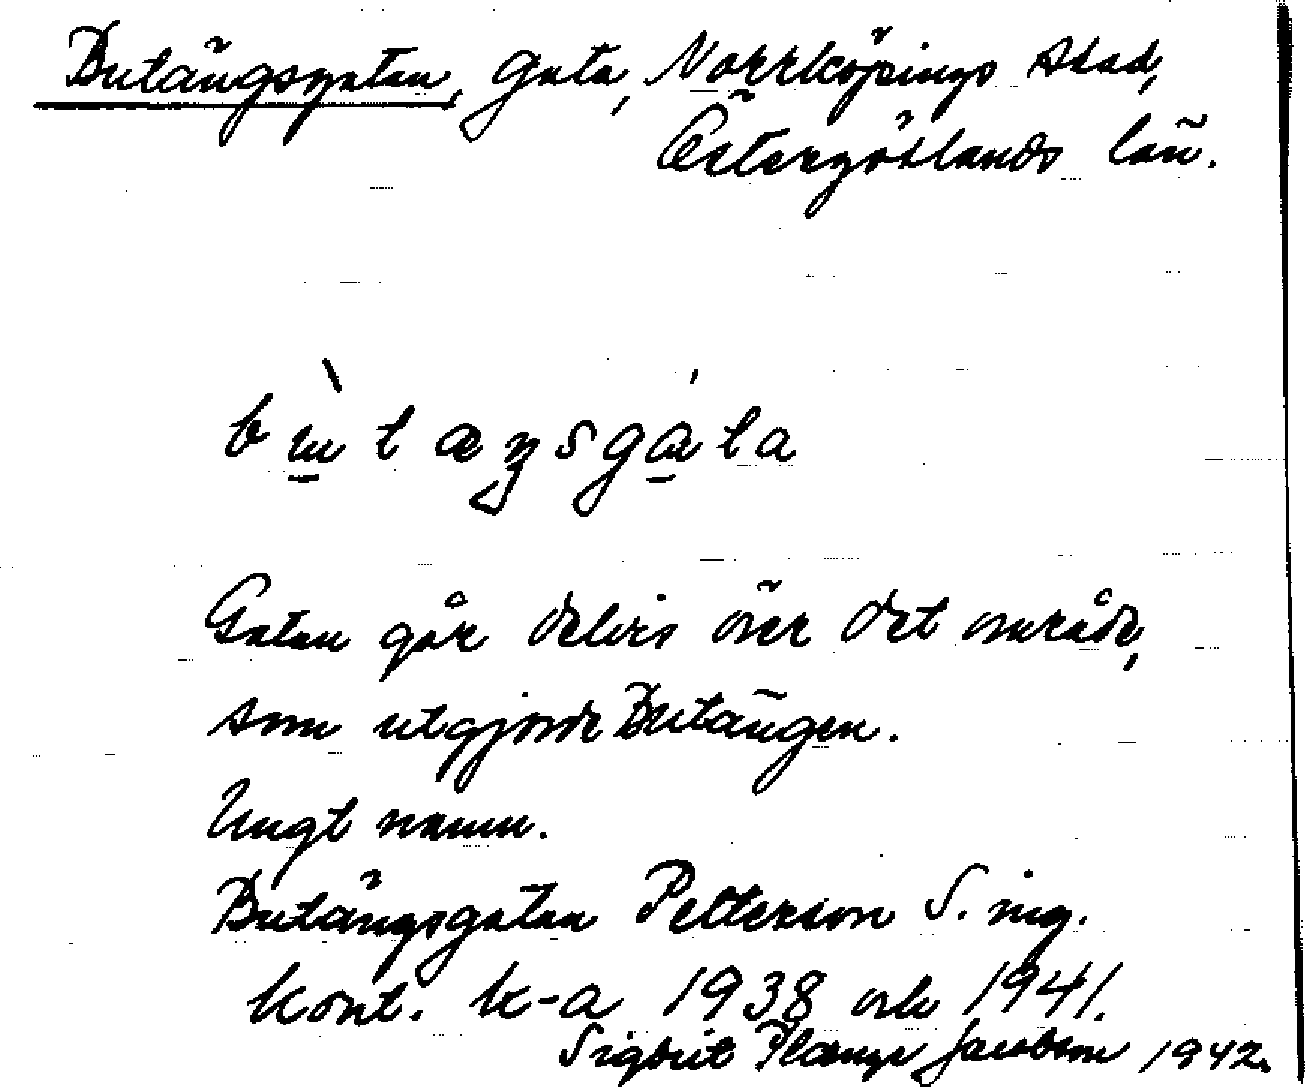 Butängsgatan, gata, Norrköpings stad,
Östergötlands län.
bu̠tæŋsga̠ta
Gatan går delvis över det område,
som utgjorde Butängen.
Ungt namn.
Butängsgatan Petterson S. ing.
kont. k-a 1938 och 1941.
Sigbrit Plænge Jacobson 1942.